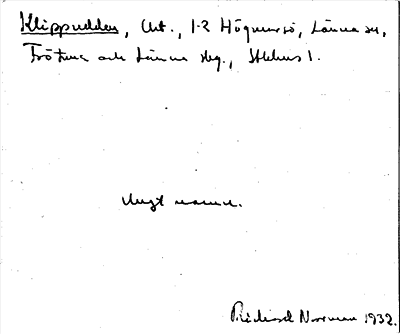 Klippudden, Utt., 1-2 Högmarsö, Länna sn,
Frötuna och Länna skg., Sthlms l.
Ungt namn.
Rickard Norman 1932.